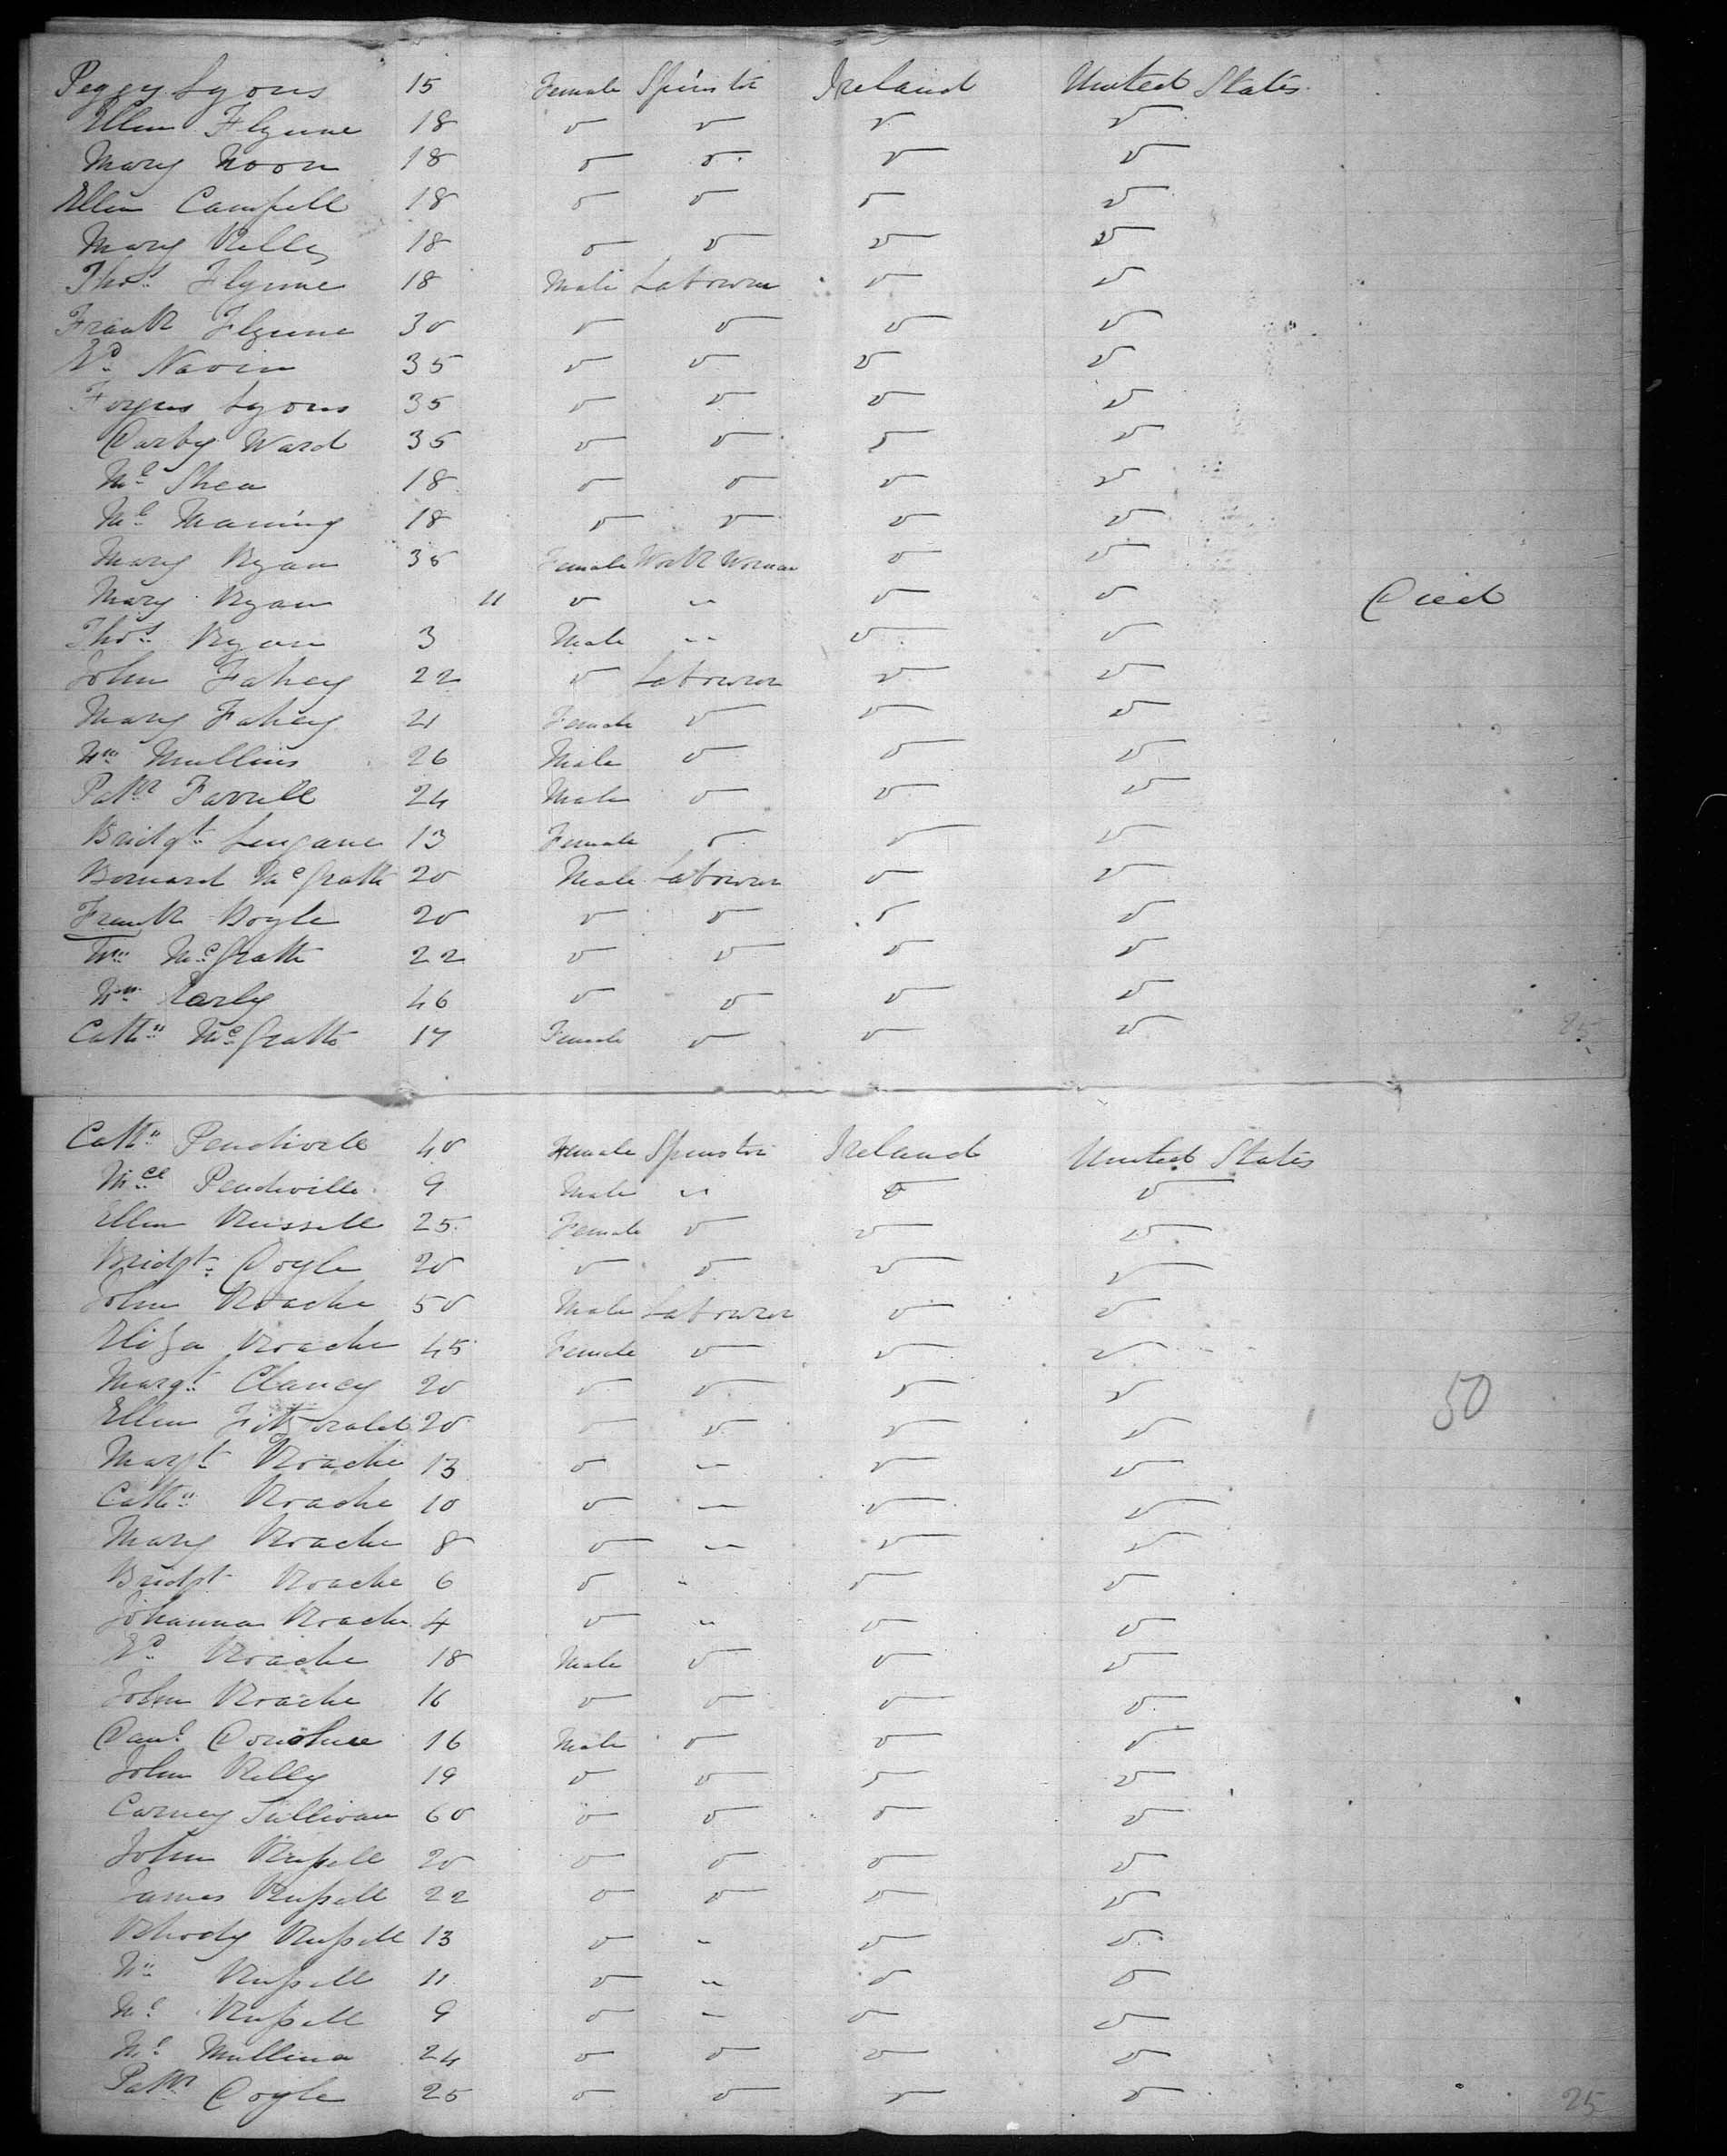 Peggy Lyons 15 Female Spinster Ireland United States
Ellen Flynne 18 " " " "
Mary Noon 18 " " " "
Ellen Campell 18 " " " "
Mary Kelly 18 " " " "
Thos. Flynne 18 Male Labourer " "
Frank Flynne 30 " " " "
Navin 35 " " " "
Fergus Lyons 35 " " " "
Darby Ward 35 " " " "
Ml. Shea 18 " " " "
Ml. Maning 18 " " " "
Mary Ryan 35 Female Work Woman " "
Mary Ryan 11 " " " " Died
Thos. Ryan 3 Male " " "
John Fahey 22 " Labourer " "
Mary Fahey 21 Female " " "
Wm. Mullins 26 Male " " "
Patk. Farrell 24 Male " " "
Bridgt. 13 Female " " "
Bernard McGrath 20 Male Labourer " "
Frank Boyle 20 " " " "
Wm. McGrath 22 " " " "
Wm. Early 46 " " " "
Cathn. McGrath 17 Female " " " 25
Cathn. Pendivell 40 Female Spinster Ireland United States
Mcl. Pendiville 9 Male " " "
Ellen Russell 25 Female " " "
Bridgt. Doyle 20 " " " "
John Roache 50 Male Labourer " "
Eliza Roache 45 Female " " "
Margt. Clancy 20 " " " "
50
Ellen Fitzgerald 20 " " " "
Margt. Roache 13 " " " "
Cathn. Roache 10 " " " "
Mary Roache 8 " " " "
Bridgt. Roache 6 " " " "
Johanna Roache 4 " " " "
Roache 18 Male " " "
John Roache 16 " " " "
Danl. Donohue 16 Male " " "
John Kelly 19 " " " "
Carney Sullivan 60 " " " "
John Russell 20 " " " "
James Russell 22 " " " "
Rhody Russell 13 " " " "
Wm. Russell 11 " " " "
Ml. Russell 9 " " " "
Ml. Mullina 24 " " " "
Patk. Doyle 25 " " " " 25